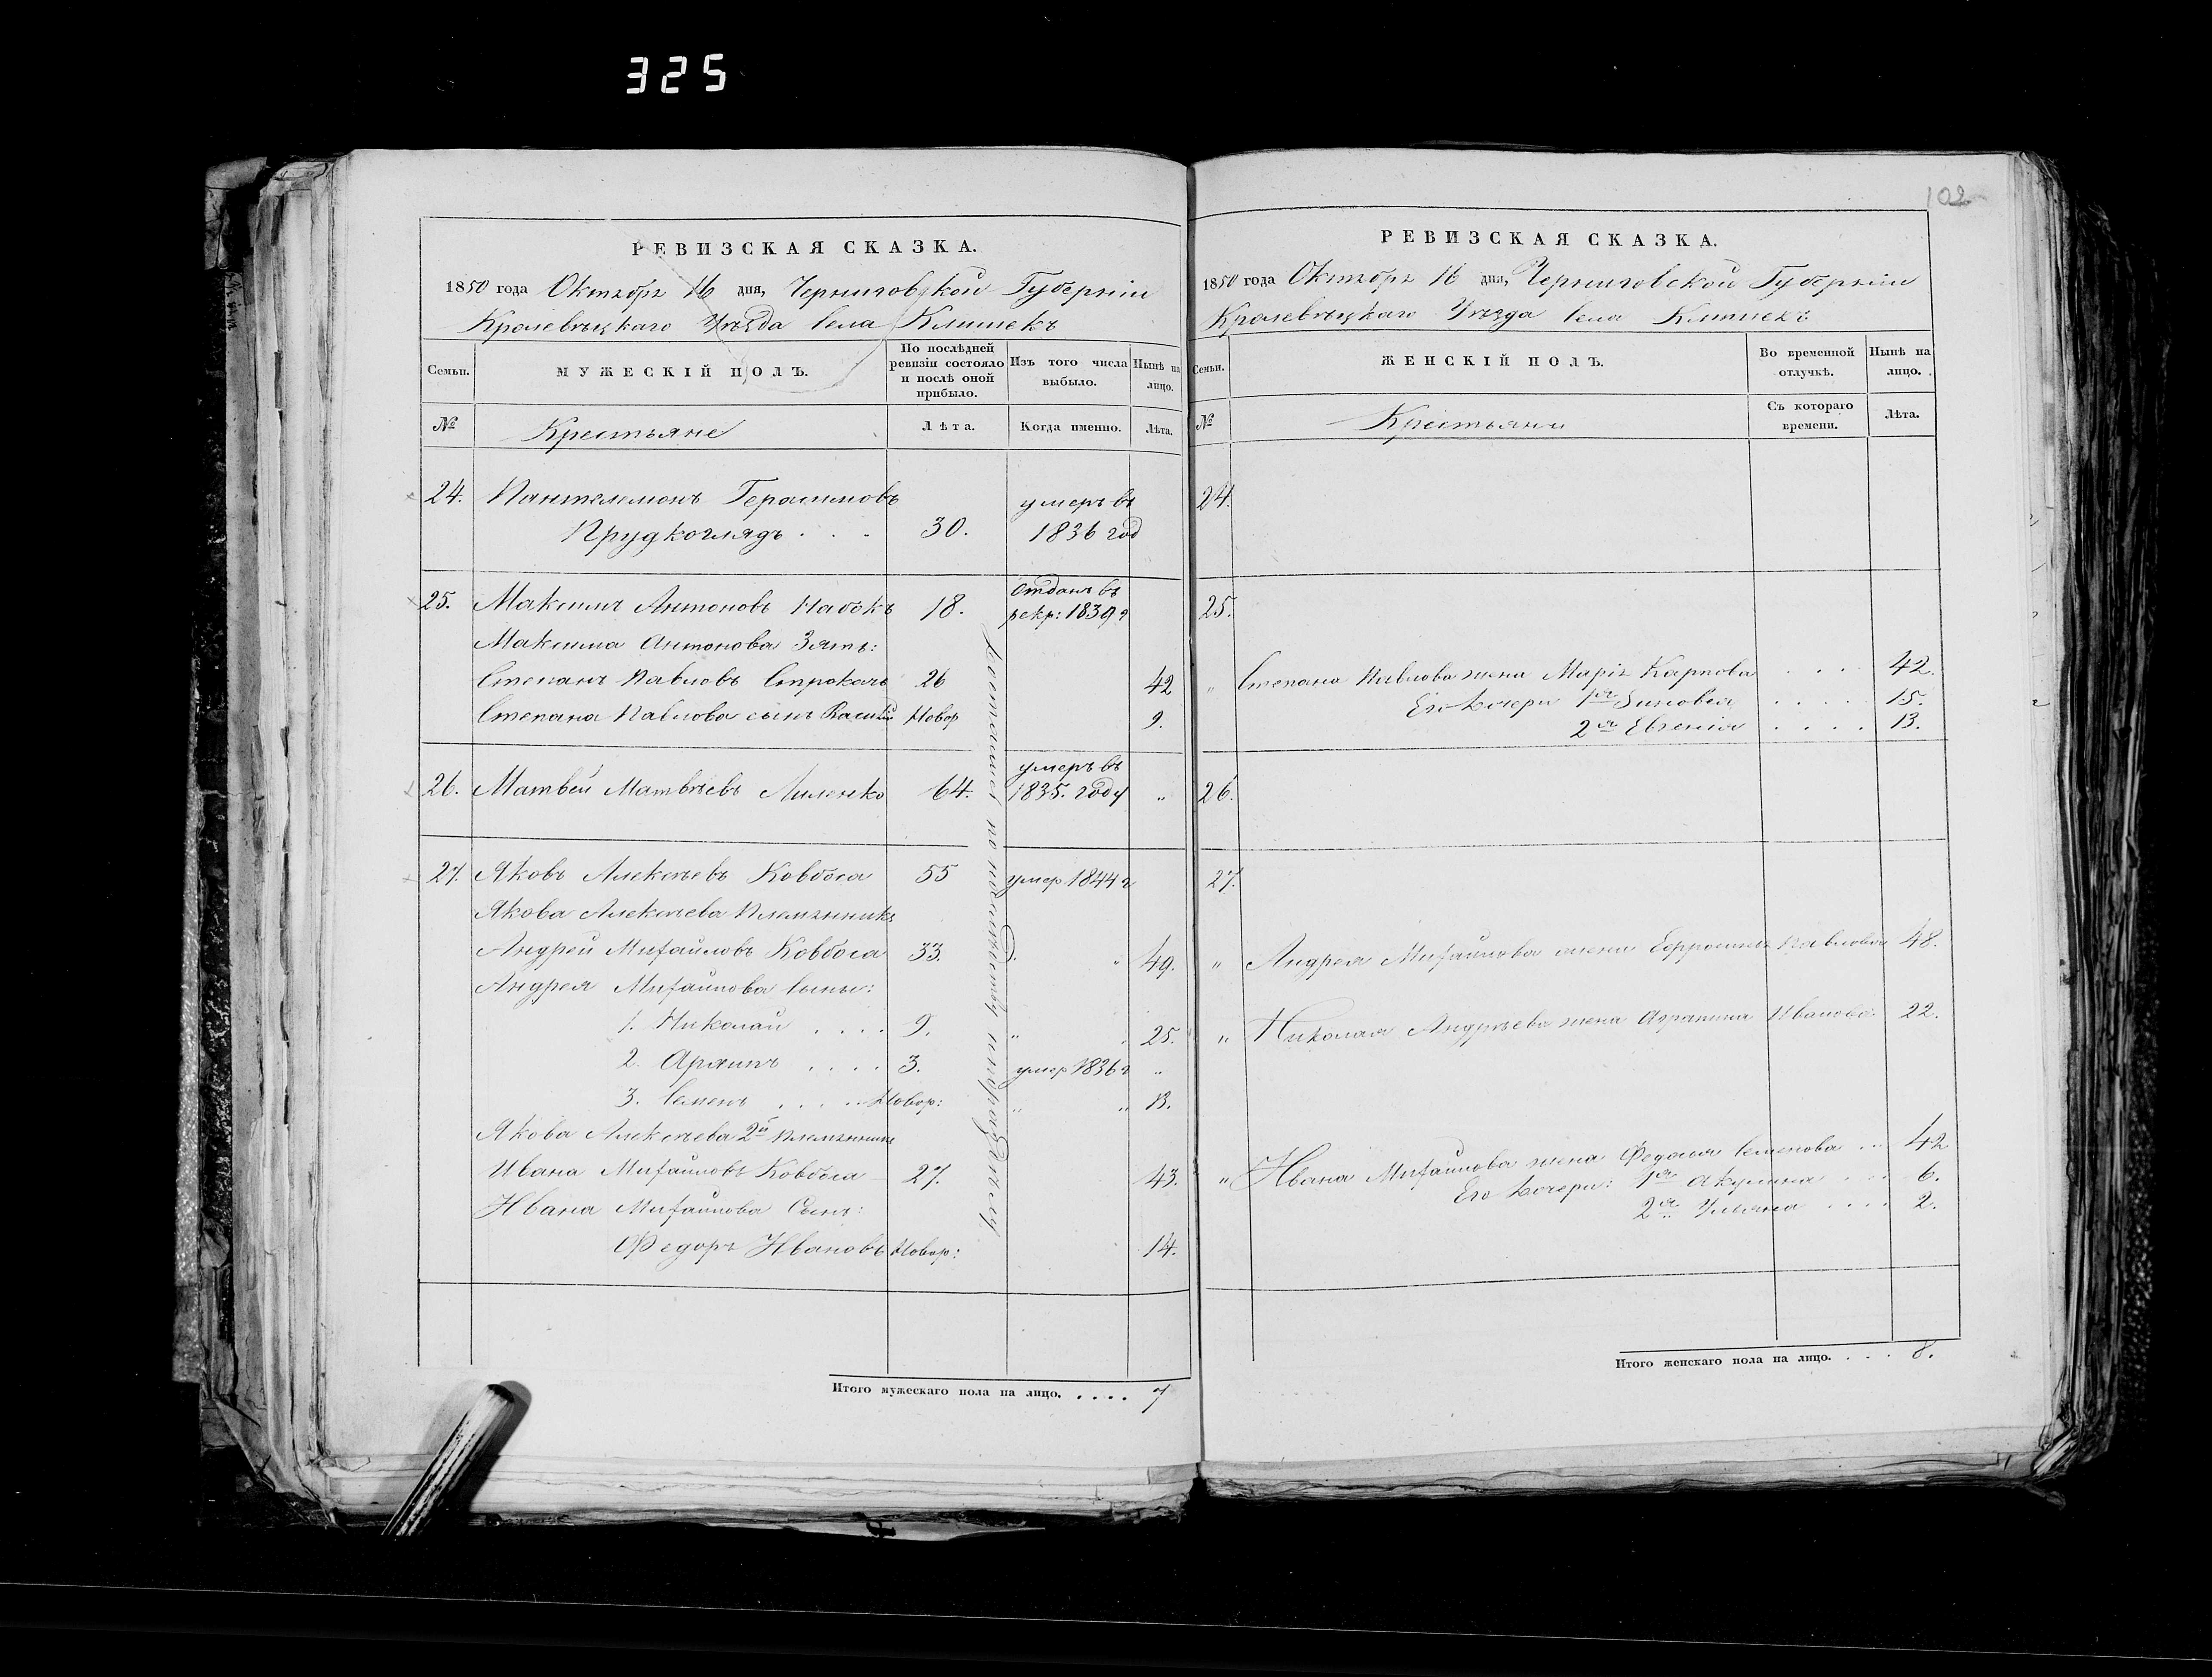 325
102
РЕВИЗСКАЯ СКАЗКА.
1850 года Октября 16 дня, Черниговской Губерніи
Кролевецкаго Уѣзда Села Клишекъ
Семьи.
МУЖЕСКІЙ ПОЛЪ.
По послѣдней ревизіи состояло и послѣ оной прибыло.
Изъ того числа выбыло.
Нынѣ на лицо.
№
Крестьяне
Лѣта.
Когда именно.
Лѣта.
24. Пантелемонъ Герасимовъ умеръ въ
Прудкоглядъ . . . 30. 1836 год
25. Максимъ Антоновъ Набокъ 18. Отданъ въ рекр: 1839 г
Максима Антонова Зять:
Степанъ Павловъ Строкачь 26 42
Степана Павлова сынъ Василій Новор 9.
26. Матвей Матвѣевъ Лиленко 64. умеръ въ 1835. году "
27. Яковъ Алексѣевъ Ковбаса 55 умер 1844 г
Якова Алексѣева Племянникъ
Андрей Михайловъ Ковбаса 33. " 49.
Андрея Михайлова сыны:
1. Николай . . . . 9. " " 25.
2. . . . . 3. умер 1836 г "
3. Семенъ . . . . Новор: " " 13.
Якова Алексѣева 2й племянникъ
Ивана Михайловъ Ковбаса 27. 43.
Ивана Михайлова Сынъ:
Федоръ Ивановъ Новор: 14.
Итого мужескаго пола на лицо. . . . . 7
РЕВИЗСКАЯ СКАЗКА.
1850 года Октября 16 дня, Черниговской Губерніи
Кролевецкаго Уѣзда Села Клишекъ
Семьи.
ЖЕНСКІЙ ПОЛЪ.
Во временной отлучкѣ.
Нынѣ на лицо.
№
Крестьяни
Съ котораго времени.
Лѣта.
24.
25.
" Степана Павлова жена Марія Карпова . . . 42.
Его Дочери 1я Зиновія . . . . . 15.
2я Евгенія . . . . 13.
26.
27.
" Андрея Михайлова жена Ефросинія Павлова 48.
" Николая Андрѣева жена Агрипина Иванова 22.
" Ивана Михайлова жена Федосія Семенова . . 42
Его Дочери: 1я Акулина . . . 6.
2я Ульяна . . . . 2.
Итого женскаго пола на лицо. . . . 8.